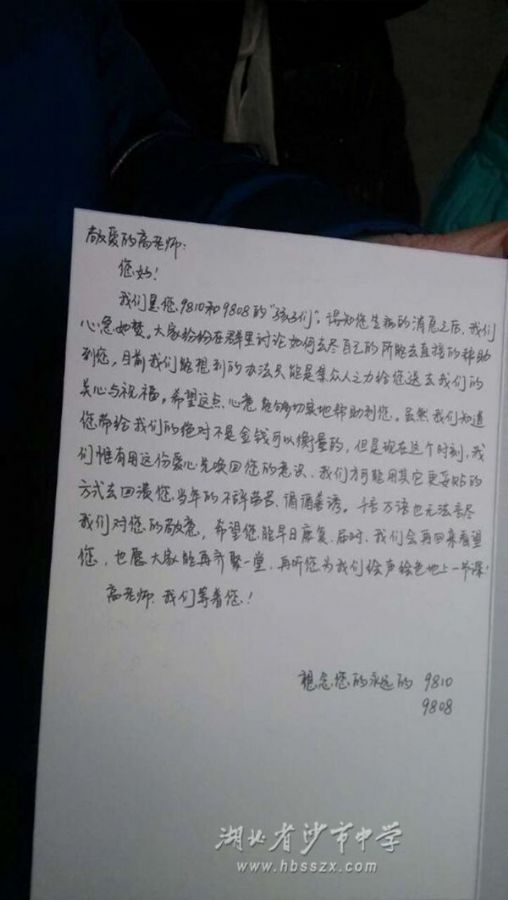 敬爱的高老师：
您好！
我们是您9810和9808的“孩子们”，得知您生病的消息之后，我们
心急如焚。大家纷纷在群里讨论如何去尽自己的所能去直接的帮助
到您，目前我们能想到的办法只能是集众人之力给您送去我们的
关心与祝福。希望这点心意能够切实地帮助到您。虽然我们知道
您带给我们的绝对不是金钱可以衡量的，但是现在这个时刻，我
们惟有用这份爱心先唤回您的意识，我们才可能用其它更妥帖的
方式去回馈您当年的不辞劳苦、谆谆善诱。千言万语也无法言尽
我们对您的敬意，希望您能早日康复，届时，我们会再回来看望
您，也愿大家能再齐聚一堂，再听您为我们绘声绘色地上一节课！
高老师：我们等着您！
想念您的永远的 9810
9808
湖北省沙市中学
www.hbsszx.com